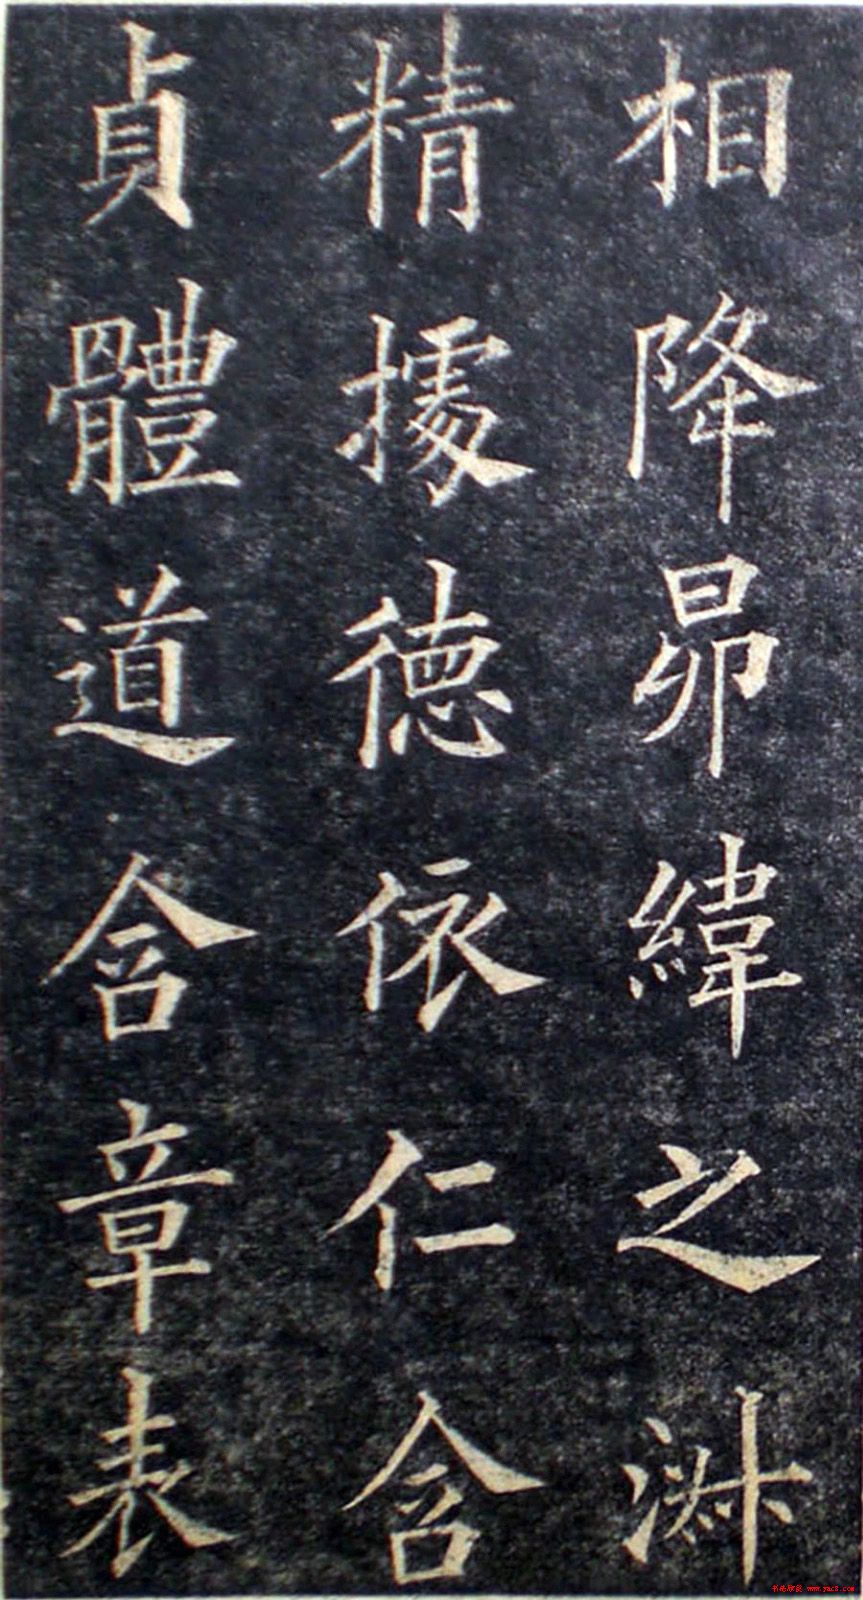 相降昴緯之淑
精據德依仁含
貞體道含章表
www.yac8.com